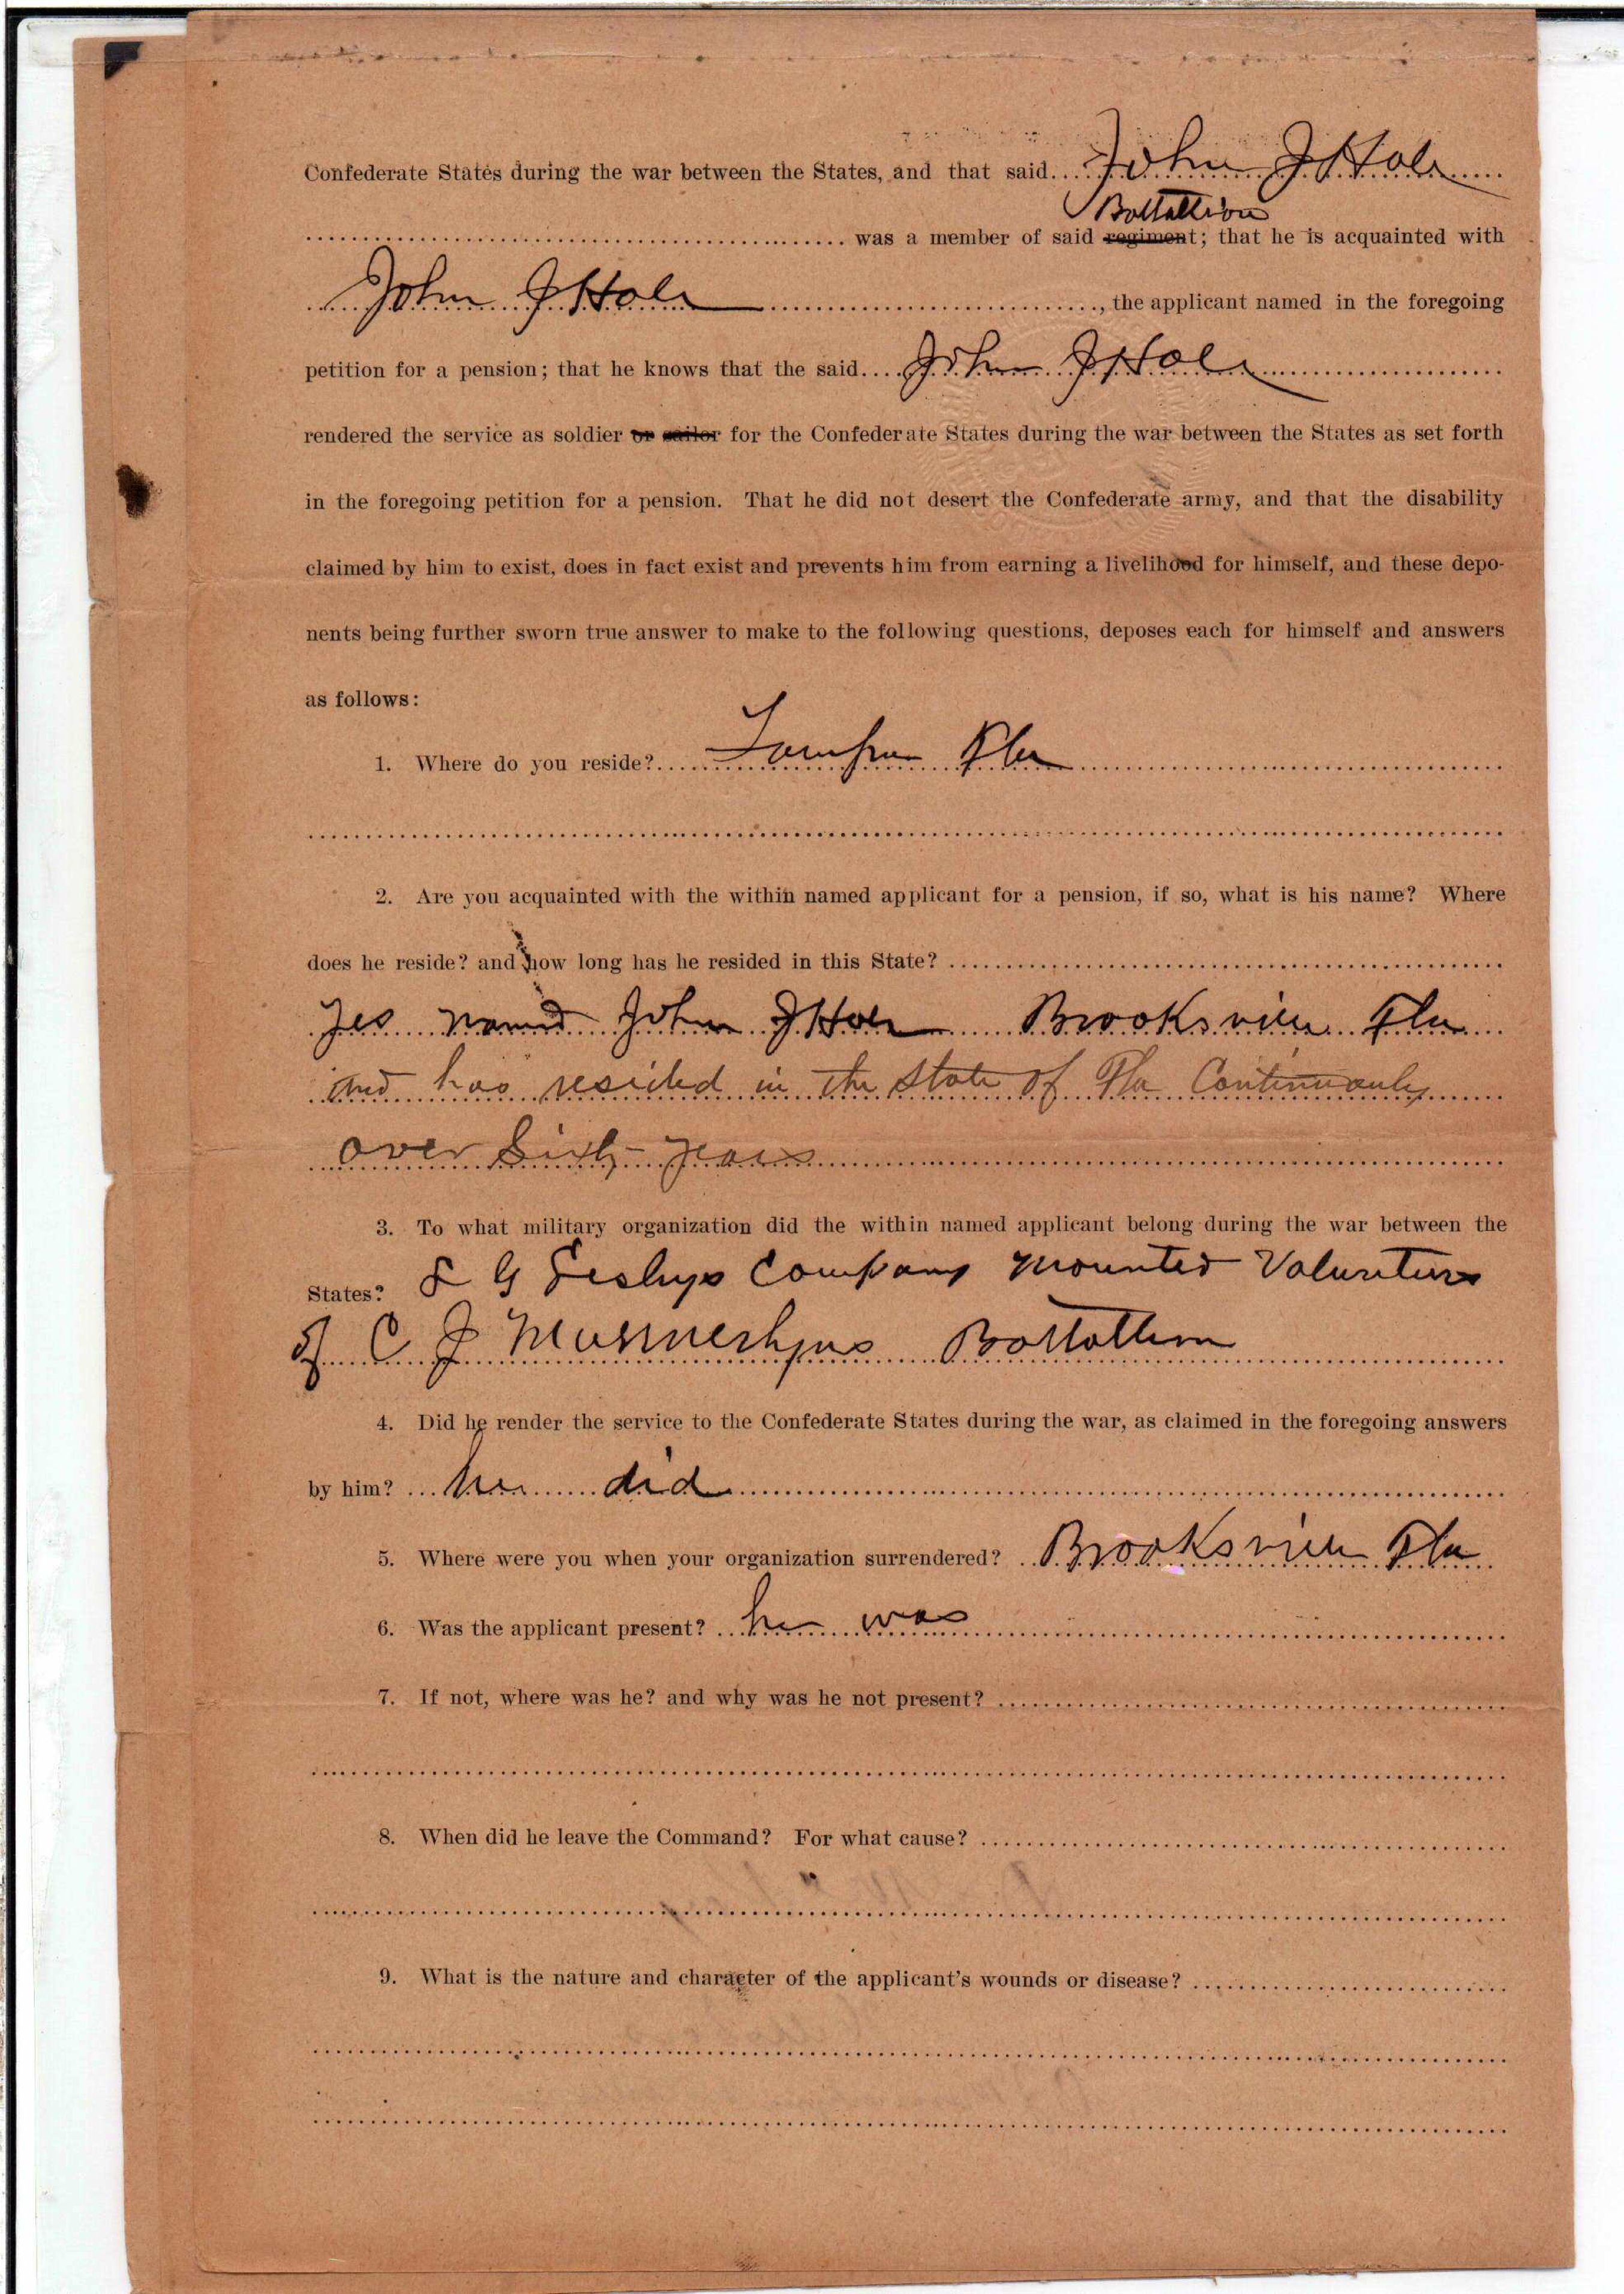 Confederate States during the war between the States, and that said John J Hale
Battallion
was a member of said regiment; that he is acquainted with
John J Hale, the applicant named in the foregoing
petition for a pension; that he knows that the said John J Hale
rendered the service as soldier or sailor for the Confederate States during the war between the States as set forth
in the foregoing petition for a pension. That he did not desert the Confederate army, and that the disability
claimed by him to exist, does in fact exist and prevents him from earning a livelihood for himself, and these depo-
nents being further sworn true answer to make to the following questions, deposes each for himself and answers
as follows:
1. Where do you reside? Tampa Fla
2. Are you acquainted with the within named applicant for a pension, if so, what is his name? Where
does he reside? and how long has he resided in this State?
Yes named John J Hale Brooksville Fla
and has resided in the State of Fla Continuously
over Sixty years
3. To what military organization did the within named applicant belong during the war between the
States? G Leslys Company Mounted Volunteers
of C J Munnerlyns Battallion
4. Did he render the service to the Confederate States during the war, as claimed in the foregoing answers
by him? he did
5. Where were you when your organization surrendered? Brooksville Fla
6. Was the applicant present? he was
7. If not, where was he? and why was he not present?
8. When did he leave the Command? For what cause?
9. What is the nature and character of the applicant's wounds or disease?